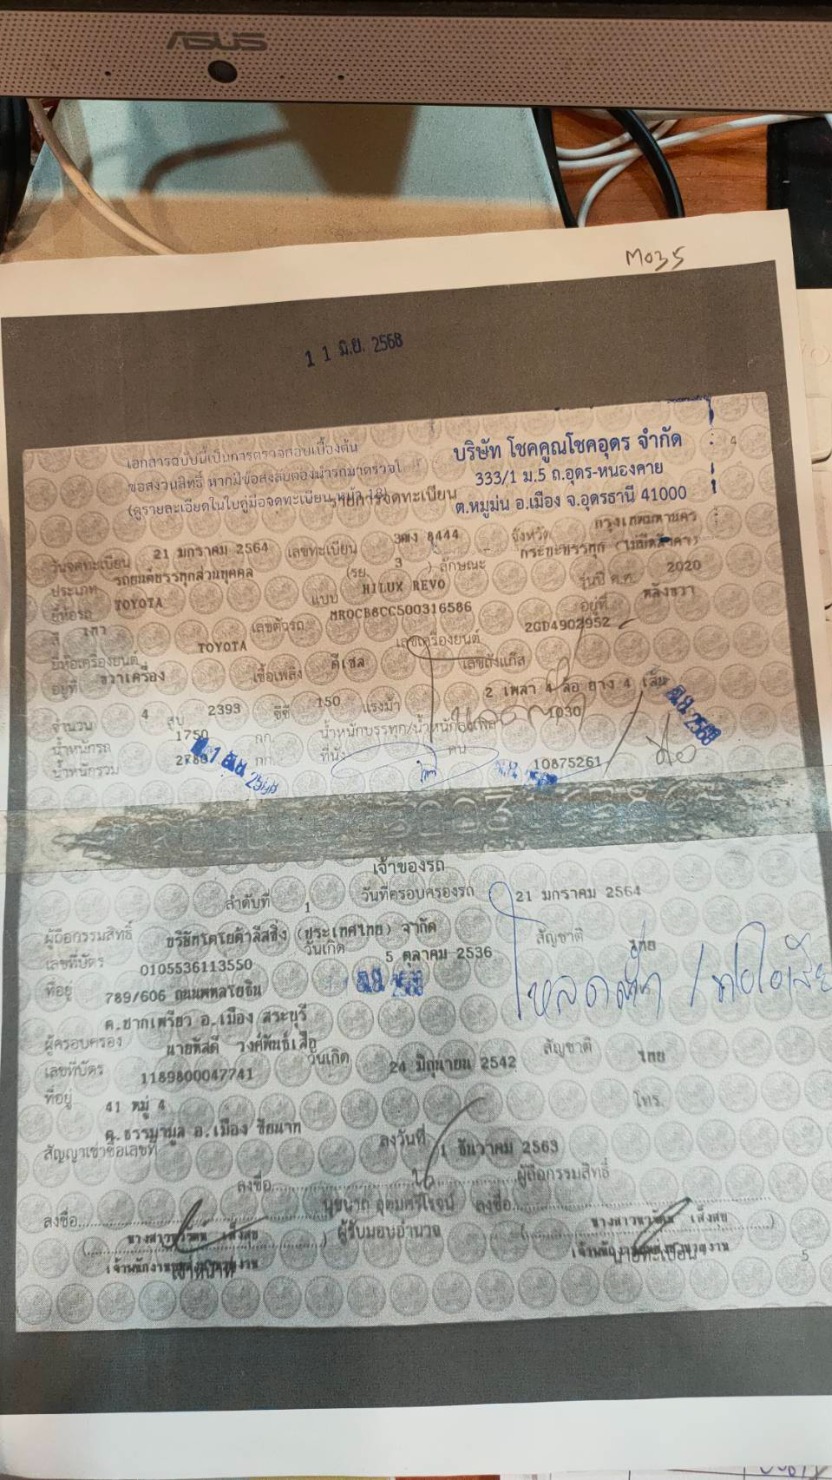 ASUS
M035
11 มิ.ย. 2568
เอกสารฉบับนี้เป็นการตรวจสอบเบื้องต้น
ขอสงวนสิทธิ์ หากมีข้อสงสัยต้องนำรถมาตรวจ
(ดูรายละเอียดในใบคู่มือจดทะเบียน หน้า 18)
บริษัท โชคคูณโชคอุดร จำกัด
333/1 ม.5 ถ.อุดร-หนองคาย
ต.หมูม่น อ.เมือง จ.อุดรธานี 41000
รายการจดทะเบียน
4
วันจดทะเบียน 21 มกราคม 2564 เลขทะเบียน 8444 จังหวัด กรุงเทพมหานคร
ประเภท รถยนต์บรรทุกส่วนบุคคล (รย. 3 ) ลักษณะ กระบะบรรทุก
ยี่ห้อรถ TOYOTA แบบ HILUX REVO รุ่นปี ค.ศ. 2020
สี เทา เลขตัวรถ MR0CB8CC500316586 อยู่ที่ หลังขวา
ยี่ห้อเครื่องยนต์ TOYOTA เลขเครื่องยนต์ 2GD4902952
อยู่ที่ ขวาเครื่อง เชื้อเพลิง ดีเซล เลขถังแก๊ส
จำนวน 4 สูบ 2393 ซีซี 150 แรงม้า 2 เพลา 4 ล้อ ยาง 4 เส้น
น้ำหนักรถ 1750 กก. น้ำหนักบรรทุก/น้ำหนักลงเพลา 1030
น้ำหนักรวม กก. ที่นั่ง คน
10875261
เจ้าของรถ
ลำดับที่ 1 วันที่ครอบครองรถ 21 มกราคม 2564
ผู้ถือกรรมสิทธิ์ บริษัทโตโยต้าลีสซิ่ง (ประเทศไทย) จำกัด
เลขที่บัตร 0105536113550 วันเกิด 5 ตุลาคม 2536 สัญชาติ ไทย
ที่อยู่ 789/606 ถนนพหลโยธิน
ต.ปากเพรียว อ.เมือง สระบุรี
ผู้ครอบครอง นายพัสดี วงศ์พันธ์เสือ
เลขที่บัตร 1189800047741 วันเกิด 24 มิถุนายน 2542 สัญชาติ ไทย
ที่อยู่ 41 หมู่ 4 โทร.
ต.ธรรมามูล อ.เมือง ชัยนาท
สัญญาเช่าซื้อเลขที่ ลงวันที่ 1 ธันวาคม 2563
ลงชื่อ ผู้ถือกรรมสิทธิ์
ลงชื่อ ลงชื่อ
ผู้รับมอบอำนาจ
5